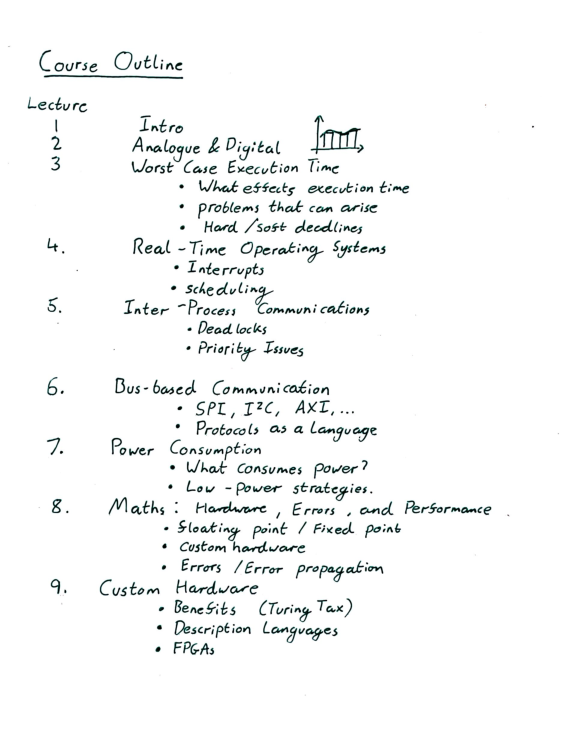 Course Outline
Lecture
1 Intro
2 Analogue & Digital
3 Worst Case Execution Time
• What effects execution time
• problems that can arise
• Hard / soft deadlines
4. Real-Time Operating Systems
• Interrupts
• scheduling
5. Inter-Process Communications
• Deadlocks
• Priority Issues
6. Bus-based Communication
• SPI, I²C, AXI, ...
• Protocols as a Language
7. Power Consumption
• What consumes power?
• Low-power strategies.
8. Maths: Hardware, Errors, and Performance
• floating point / Fixed point
• Custom hardware
• Errors / Error propagation
9. Custom Hardware
• Benefits (Turing Tax)
• Description Languages
• FPGAs